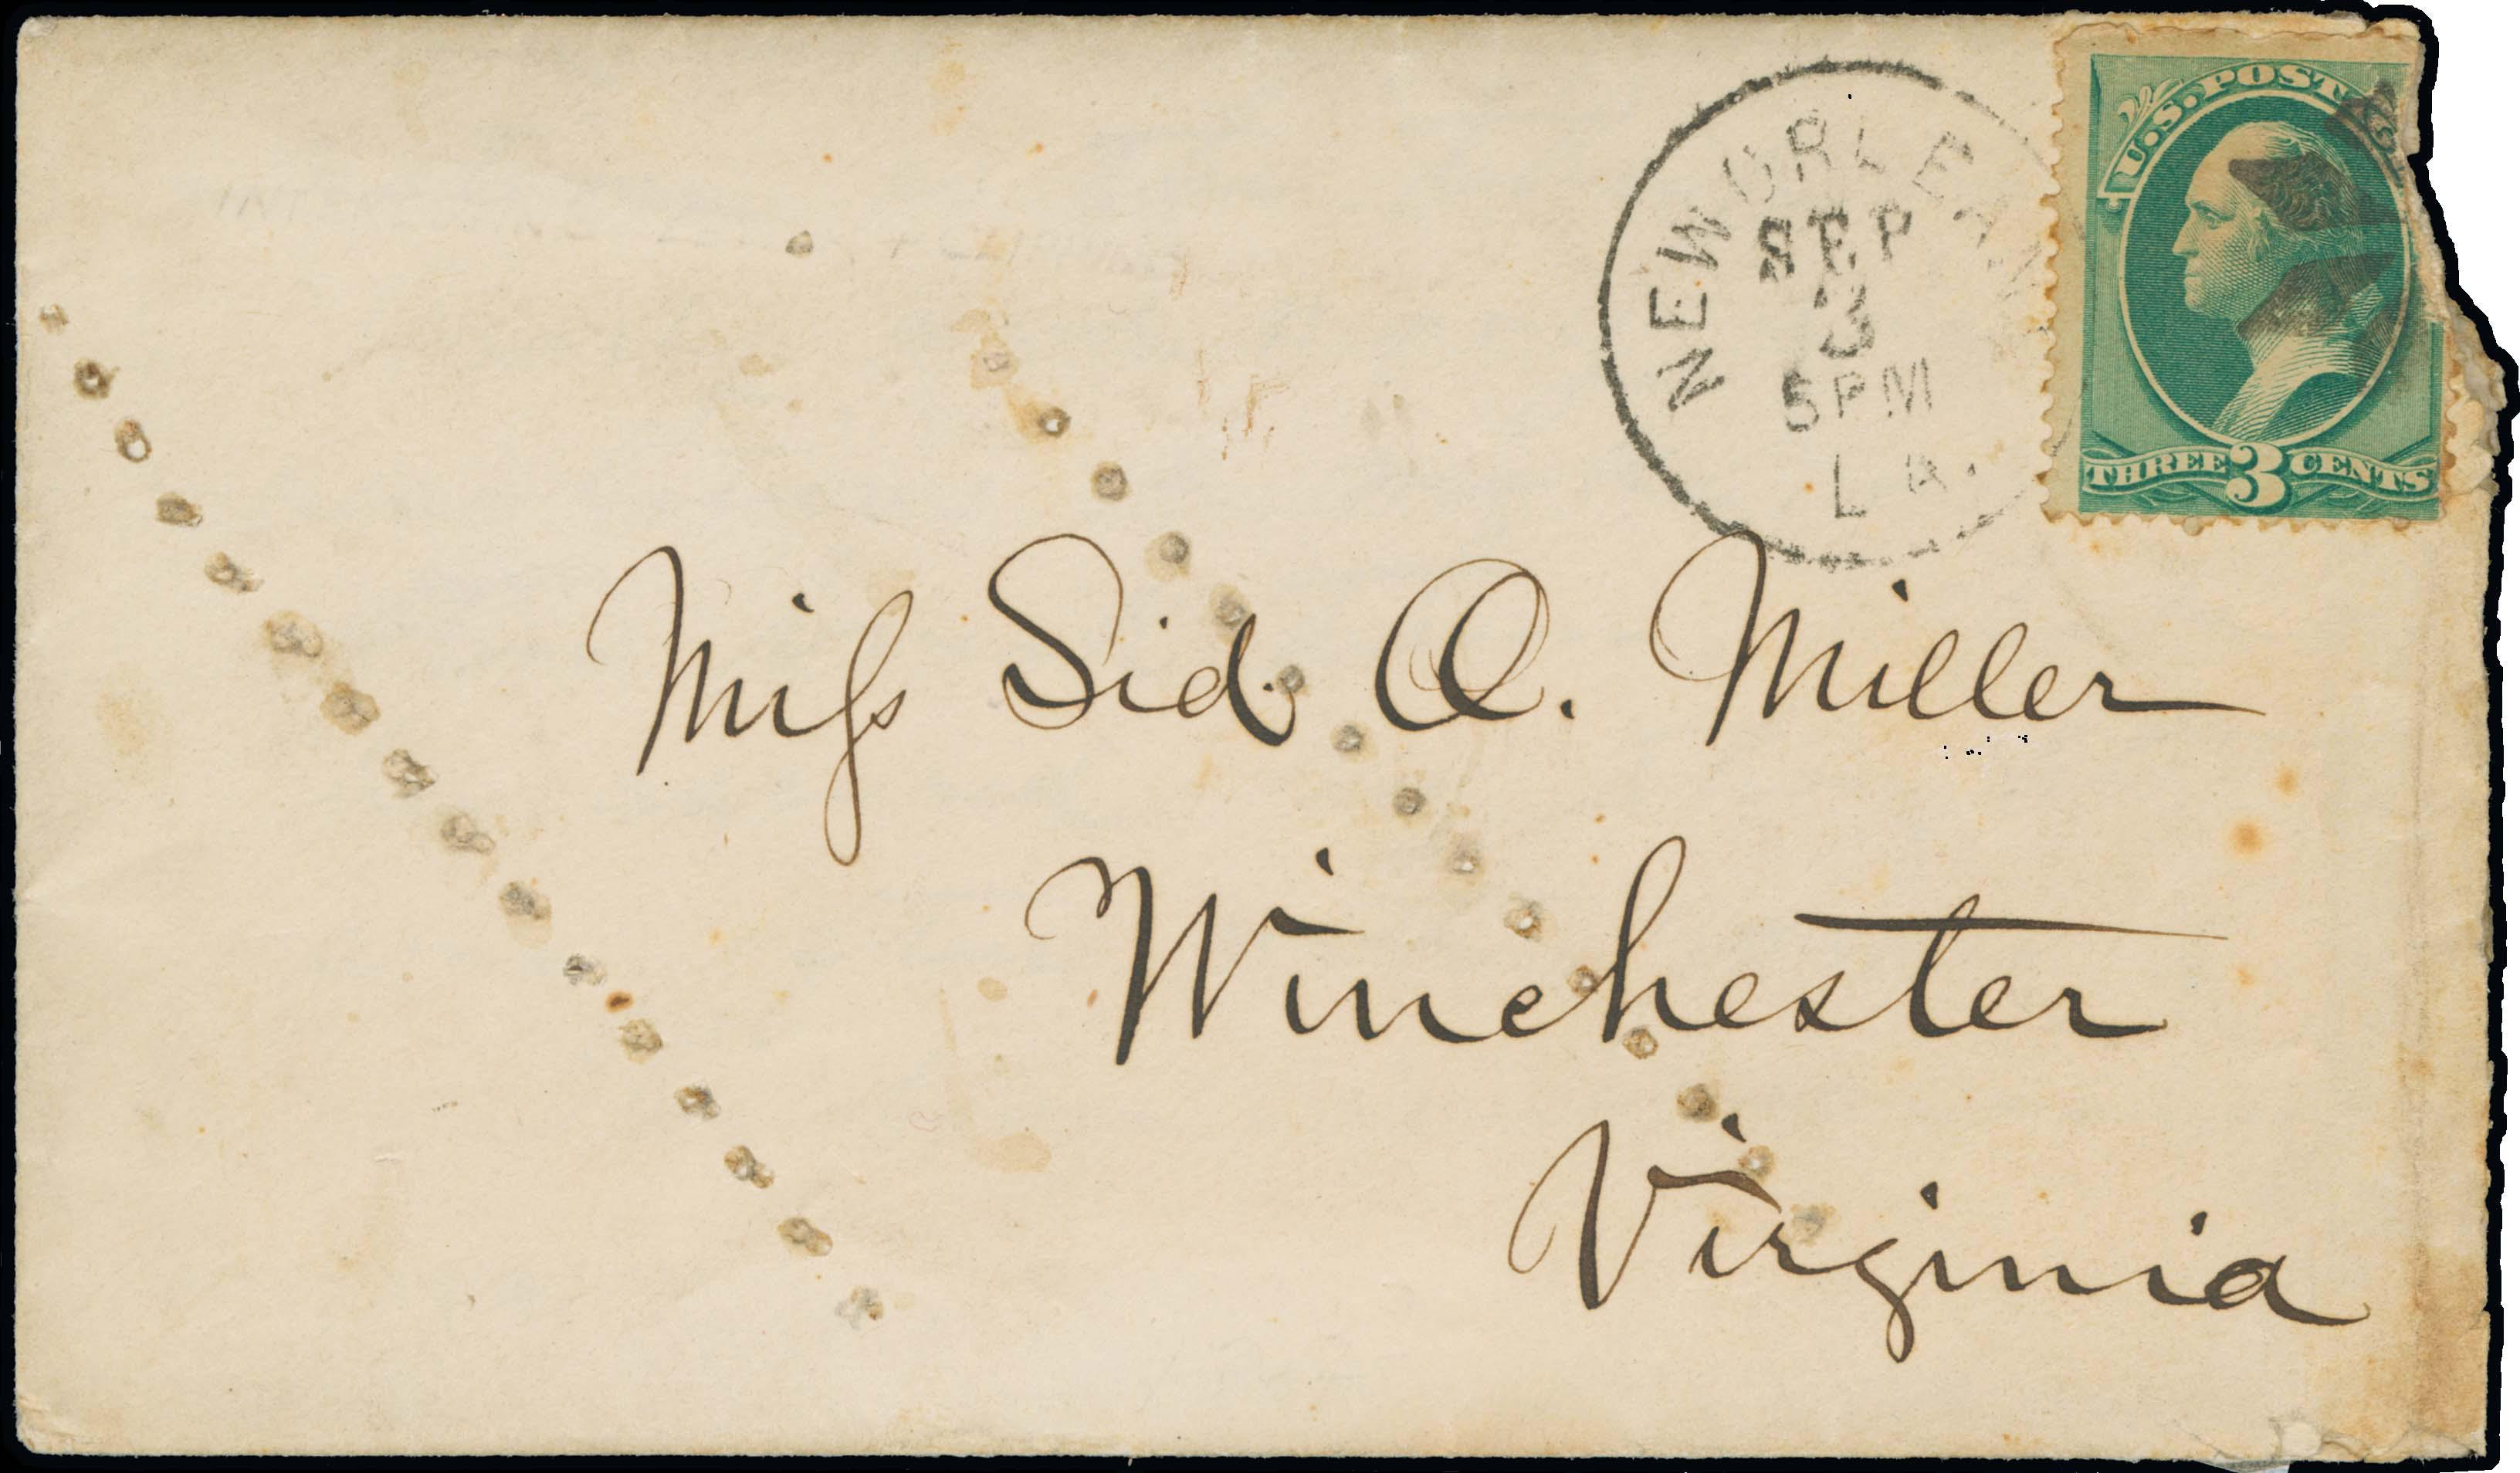 U.S. POST
NEW ORLEAN
SEP
3
5 PM
LA.
THREE 3 CENTS
Miſs Sid. A. Miller
Winchester
Virginia